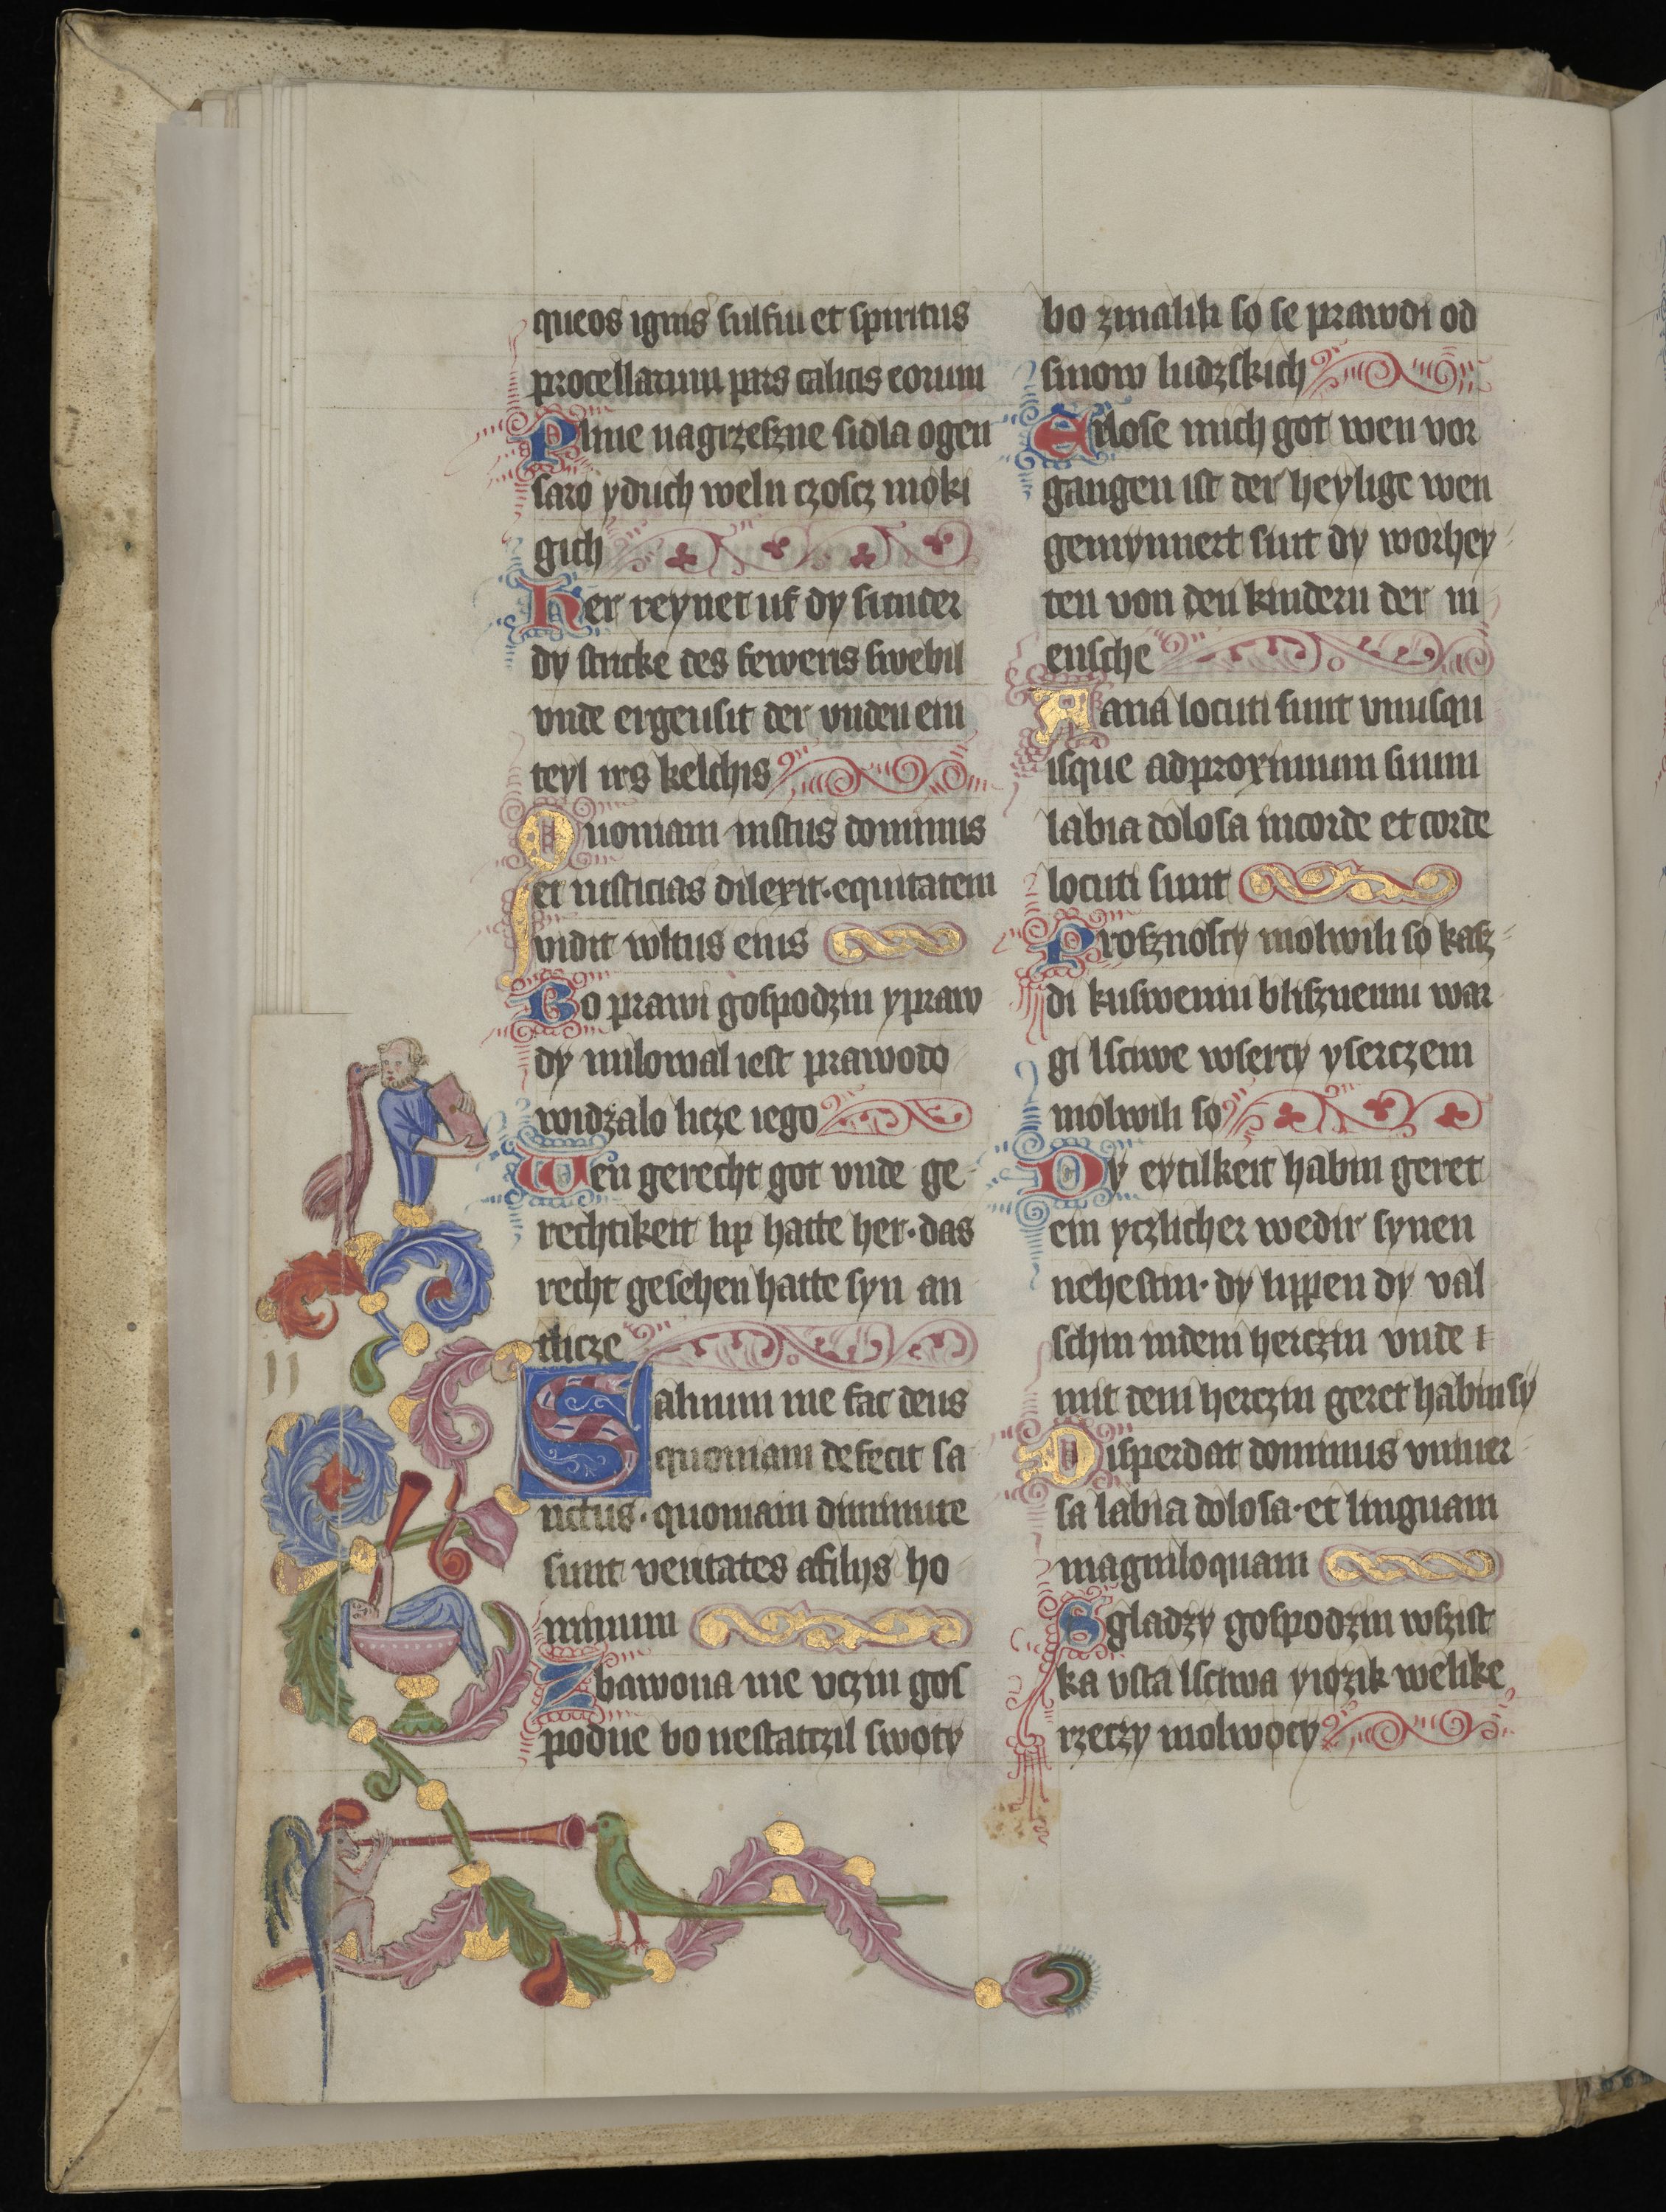 queos ignis sulfur et spiritus
procellarum pars calicis eorum
Plinie nagrzeszne sidla ogen
saro yduch weln czoscz moki
gich
Her reynet uf dy sunder
dy stricke des fewers swebil
vnde ergensit der vnden ein
teyl irs kelchis
Quoniam iustus dominus
et iusticias dilexit·equitatem
vidit wltus eius
Bo prawi gospodzin ypraw
dy milowal iest prawoto
widzalo licze iego
Wen gerecht got vnde ge
rechtikeit lip hatte her·das
recht gesehen hatte syn an
tlicze
Saluum me fac deus
quoniam defecit sa
nctus·quoniam diminute
sunt veritates afilijs ho
minum
Zbawona me vczin gos
podne bo nestatczil swoty
bo zmalili so se prawdi od
sinow ludzskich
Erlose mich got wen vor
gangen ist der heylige wen
gemynnert sint dy worhey
ten von den kindern der m
ensche
Uana locuti sunt vnusqu
isque adproximum suum
labia dolosa incorde et corde
locuti sunt
Prosznoscy molwili so kasz
di kuswemu blisznemu war
gi lsciwe wsercy yserczem
molwili so
Dy eytilkeit habin geret
ein yczlicher wedir synen
nehestin·dy lippen dy val
schin indem herczin vnde
mit dem herczin geret habin sy
Disperdat dominus vniuer
sa labia dolosa·et linguam
magniloquam
Sgladzy gospodzin wszist
ka vsta lsciwa yiozik welike
rzeczy molwocy
11